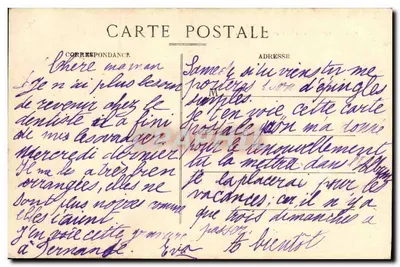 CARTE POSTALE
CORRESPONDANCE
ADRESSE
Chère maman
Je n'ai plus besoin
de revenir chez le
dentiste il a fini
de mes
Mercredi dernier
Il me les a très bien
arrangées, elles ne
sont plus noires comme
elles étaient
J'envoie cette
à Fernande. Eva
Samedi si tu viens tu me
porteras d'épingles
simples.
Je t'envoie cette carte
postale on m'a donné
pour le renouvellement
tu la mettras dans
je la placerai pour les
vacances; car il n'y a
que trois dimanches à
passer
A bientôt